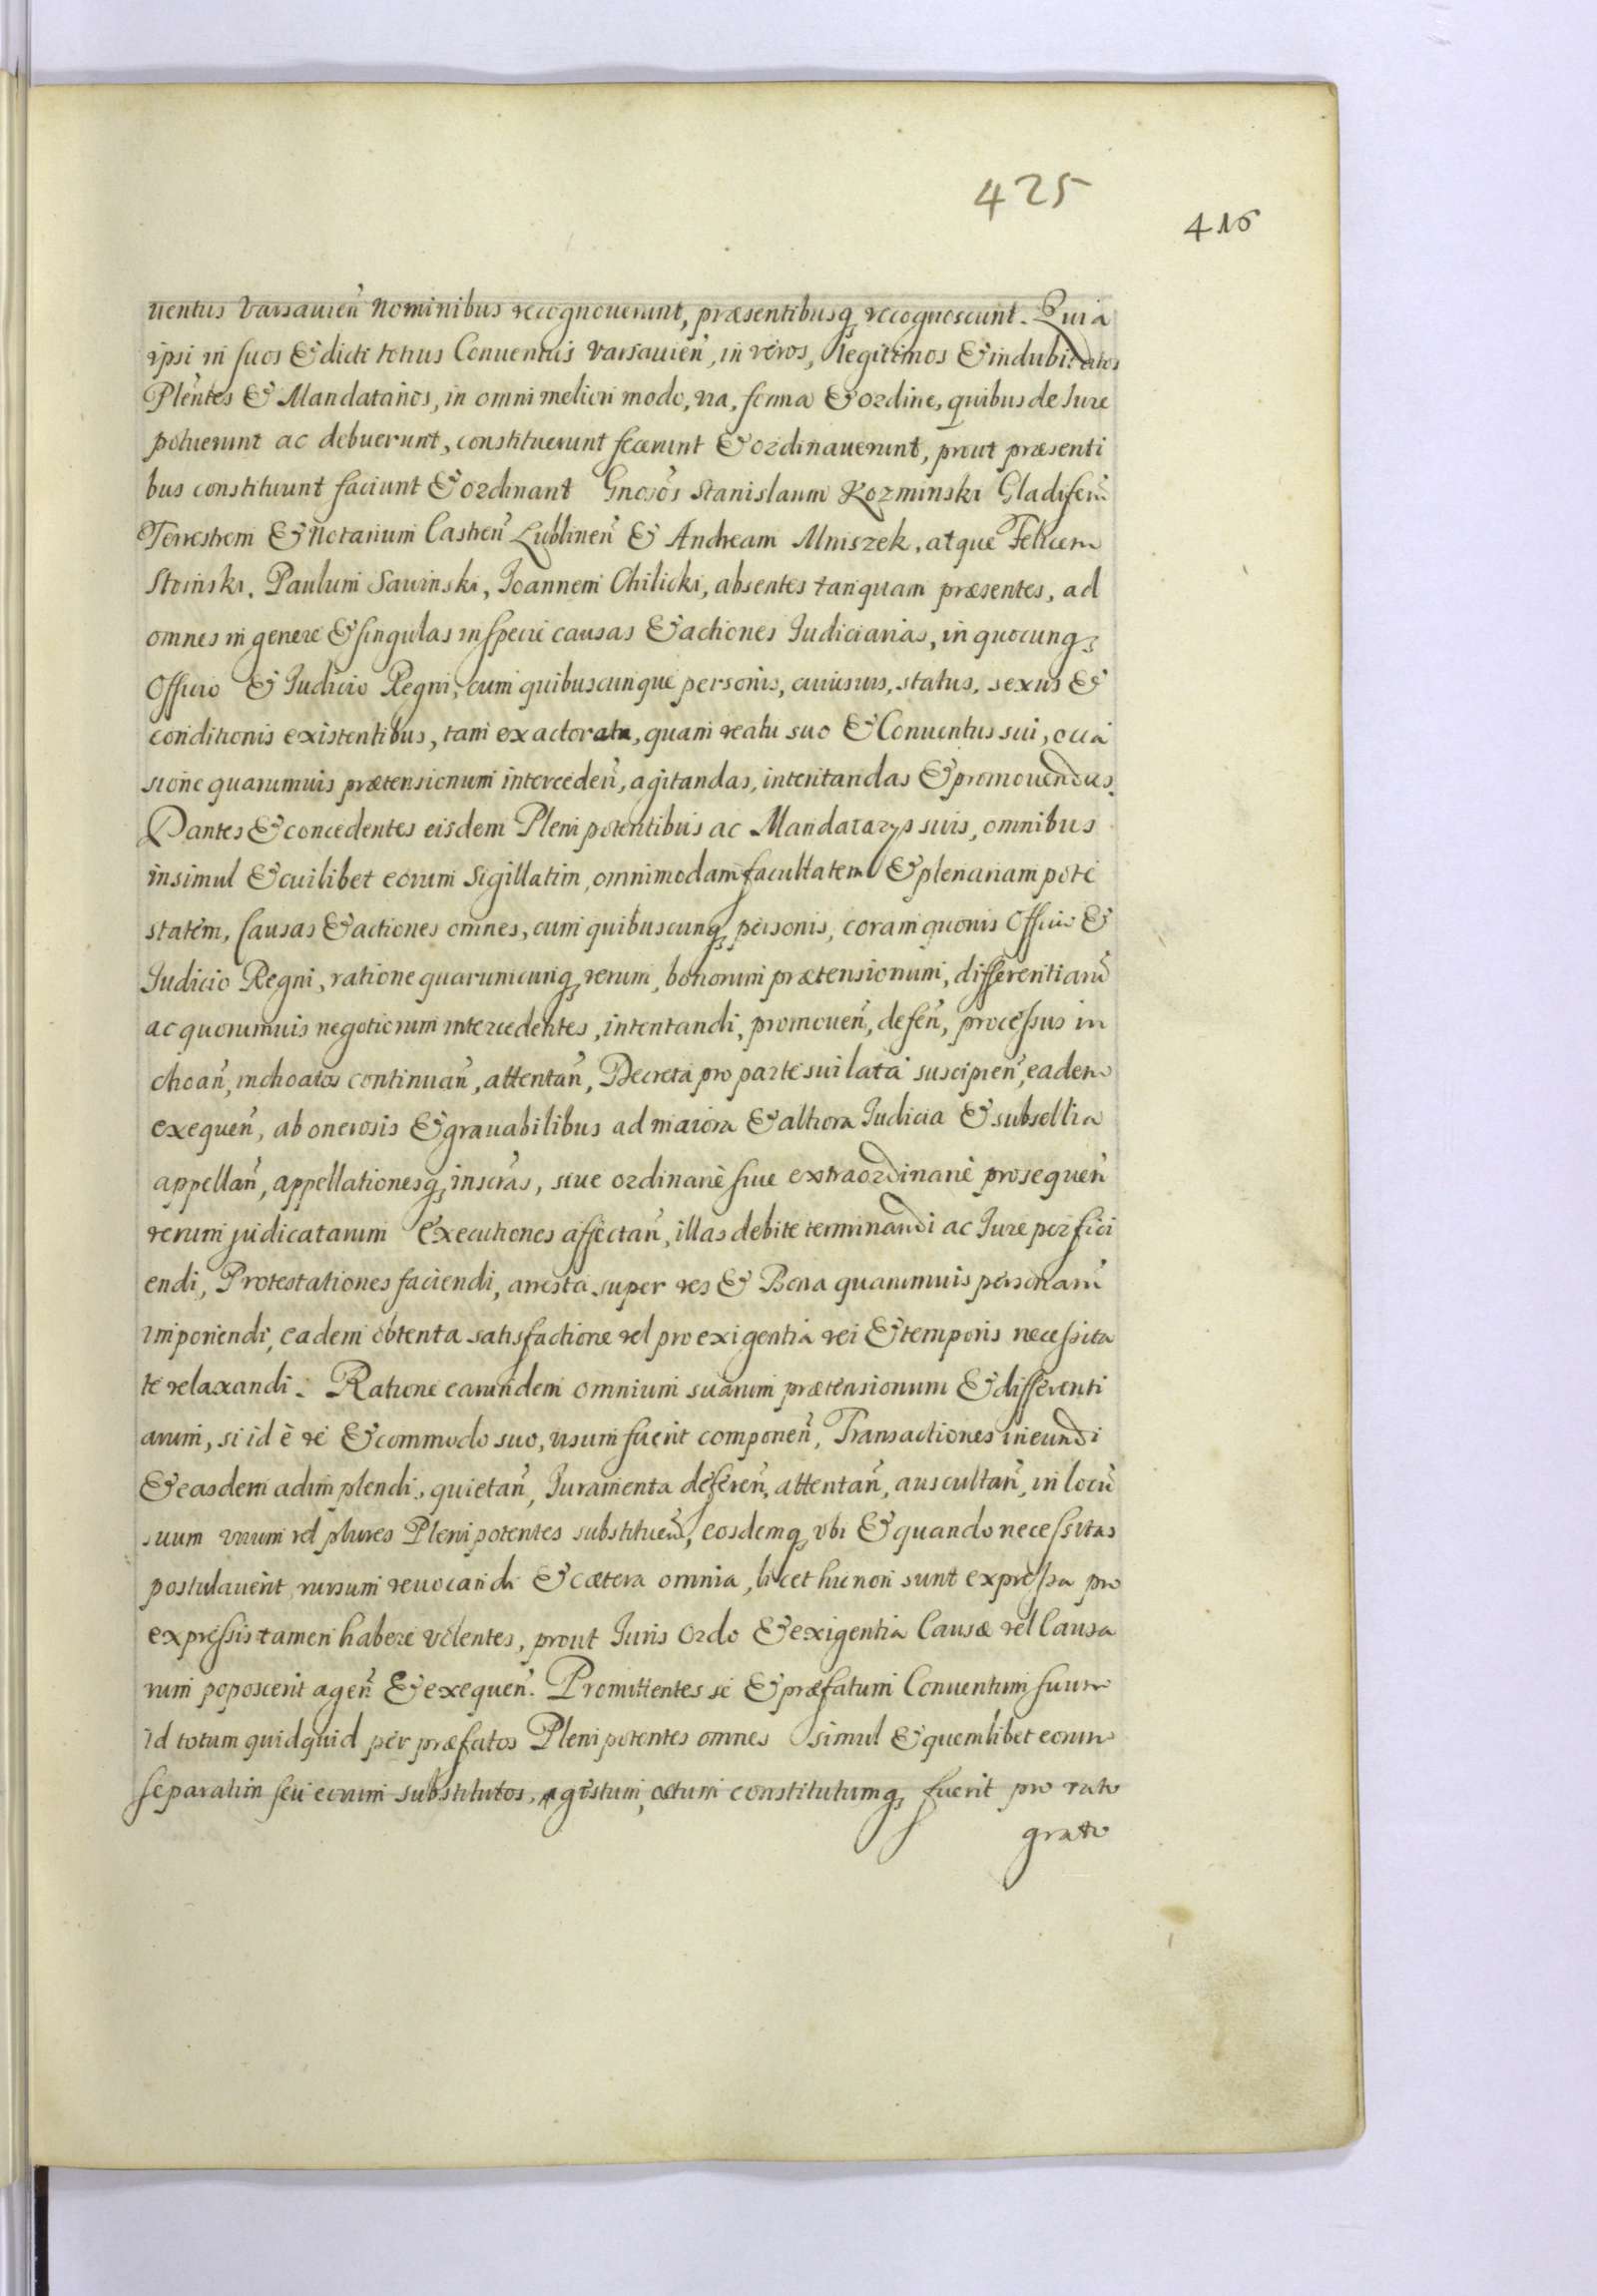 425
416
uentus Varsauien̄ Nominibus recognouerunt, præsentibusq̨ recognoscunt. Quia
ipsi in suos & dicti totius Conuentus Varsauien̄, in veros, legitimos & indubitatos
Plen̄tes & Mandatarios, in omni meliori modo, via, forma & ordine, quibus de Iure
potuerunt ac debuerunt, constituerunt fecerunt & ordinauerunt, prout præsenti
bus constituunt faciunt & ordinant Gn̄osos Stanislaum Kozminski Gladiferū
Terrestrem & Notarium Castren̄ Lublinen̄ & Andream Mniszek, atque Felicem
Stoinski, Paulum Sawinski, Ioannem Chilicki, absentes tanquam præsentes, ad
omnes in genere & singulas in specie causas & actiones Iudiciarias, in quocunq̨
Officio & Iudicio Regni, cum quibuscunque personis, cuiusuis, status, sexus &
conditionis existentibus, tam ex actoratu, quam reatu suo & Conuentus sui, occa
sione quarumuis prætensionum interceden̄, agitandas, intentandas & promouendas.
Dantes & concedentes eisdem Plenipotentibus ac Mandatarys suis, omnibus
insimul & cuilibet eorum sigillatim, omnimodam facultatem & plenariam pote
statem, Causas & actiones omnes, cum quibuscunq̨ personis, coram quouis Officio &
Iudicio Regni, ratione quarumcunq̨ rerum, bonorum prætensionum, differentiarū
ac quorumuis negotiorum intercedentes, intentandi, promouen̄, defen̄, processus in
choan̄, inchoatos continuan̄, attentan̄, Decreta pro parte sui lata suscipien̄, eadem
exequen̄, ab onerosis & grauabilibus ad maiora & altiora Iudicia & subsellia
appellan̄, appellationesq̨ insertas, siue ordinariè siue extraordinariè prosequen̄
rerum judicatarum Executiones affectan̄, illas debite terminandi ac Iure perfici
endi, Protestationes faciendi, arresta super res & Bona quarumuis personarū
imponendi, eadem obtenta satisfactione vel pro exigentia rei & temporis necessita
te relaxandi. Ratione earundem omnium suarum prætensionum & differenti
arum, si id è re & commodo suo, visum fuerit componen̄, Transactiones ineundi
& easdem adimplendi, quietan̄, Iuramenta deferen̄, attentan̄, auscultan̄, in locū
suum vnum vel plures Plenipotentes substituen̄, eosdemq̨ vbi & quando necessitas
postulauerit, rursum reuocandi & cætera omnia, licet hic non sunt expressa pro
expressis tamen habere volentes, prout Iuris Ordo & exigentia Causæ vel Causa
rum poposcerit agen̄ & exequen̄. Promittentes se & præfatum Conuentum suum
id totum quidquid per præfatos Plenipotentes omnes simul & quemlibet eorum
separatim seu eorum substitutos, gestum, actum constitutumq̨ fuerit pro rato
grato